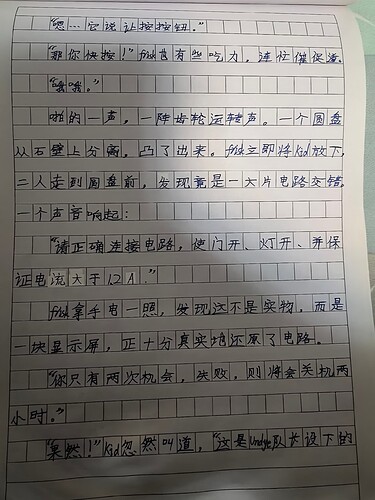 "嗯…它说让按按钮。"
"那你快按！"frisk已有些吃力，连忙催促道。
"哦哦。"
啪的一声，一阵齿轮运转声。一个圆盘
从石壁上分离，凸了出来。frisk立即将kid放下，
二人走到圆盘前，发现竟是一大片电路交错。
一个声音响起：
"请正确连接电路，使门开、灯开、并保
证电流大于12A。"
frisk拿手电一照，发现这不是实物，而是
一块显示屏，正十分真实地还原了电路。
"你只有两次机会，失败，则将会关机两
小时。"
"果然！"kid忽然叫道，"这是Undyne队长设下的